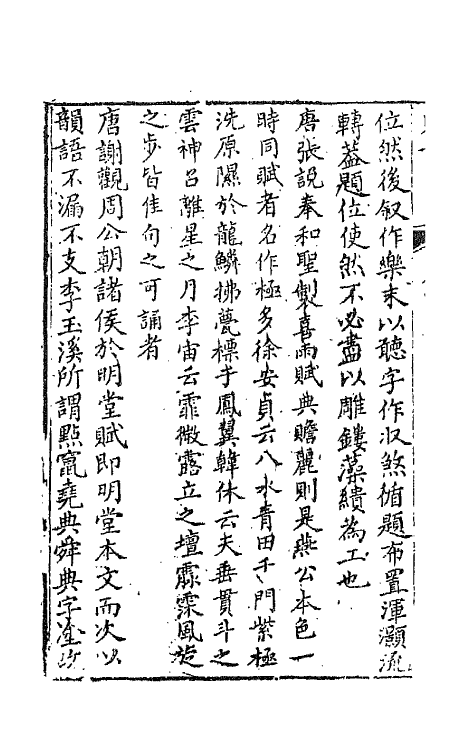 位然後叙作樂末以聽字作収煞循題布置渾灝流
轉葢題位使然不必盡以雕鏤藻繢為工也
唐張說奉和聖製喜雨賦典贍麗則是燕公本色一
時同賦者名作極多徐安貞云八水青田千門紫極
洗原隰於龍鱗拂甍標乎鳳翼韓休云夫垂貫斗之
雲神呂離星之月李宙云霏微露立之壇霢霂風旋
之步皆佳句之可誦者
唐謝觀周公朝諸侯於明堂賦即明堂本文而次以
韻語不漏不支李玉溪所謂點竄堯典舜典字塗改